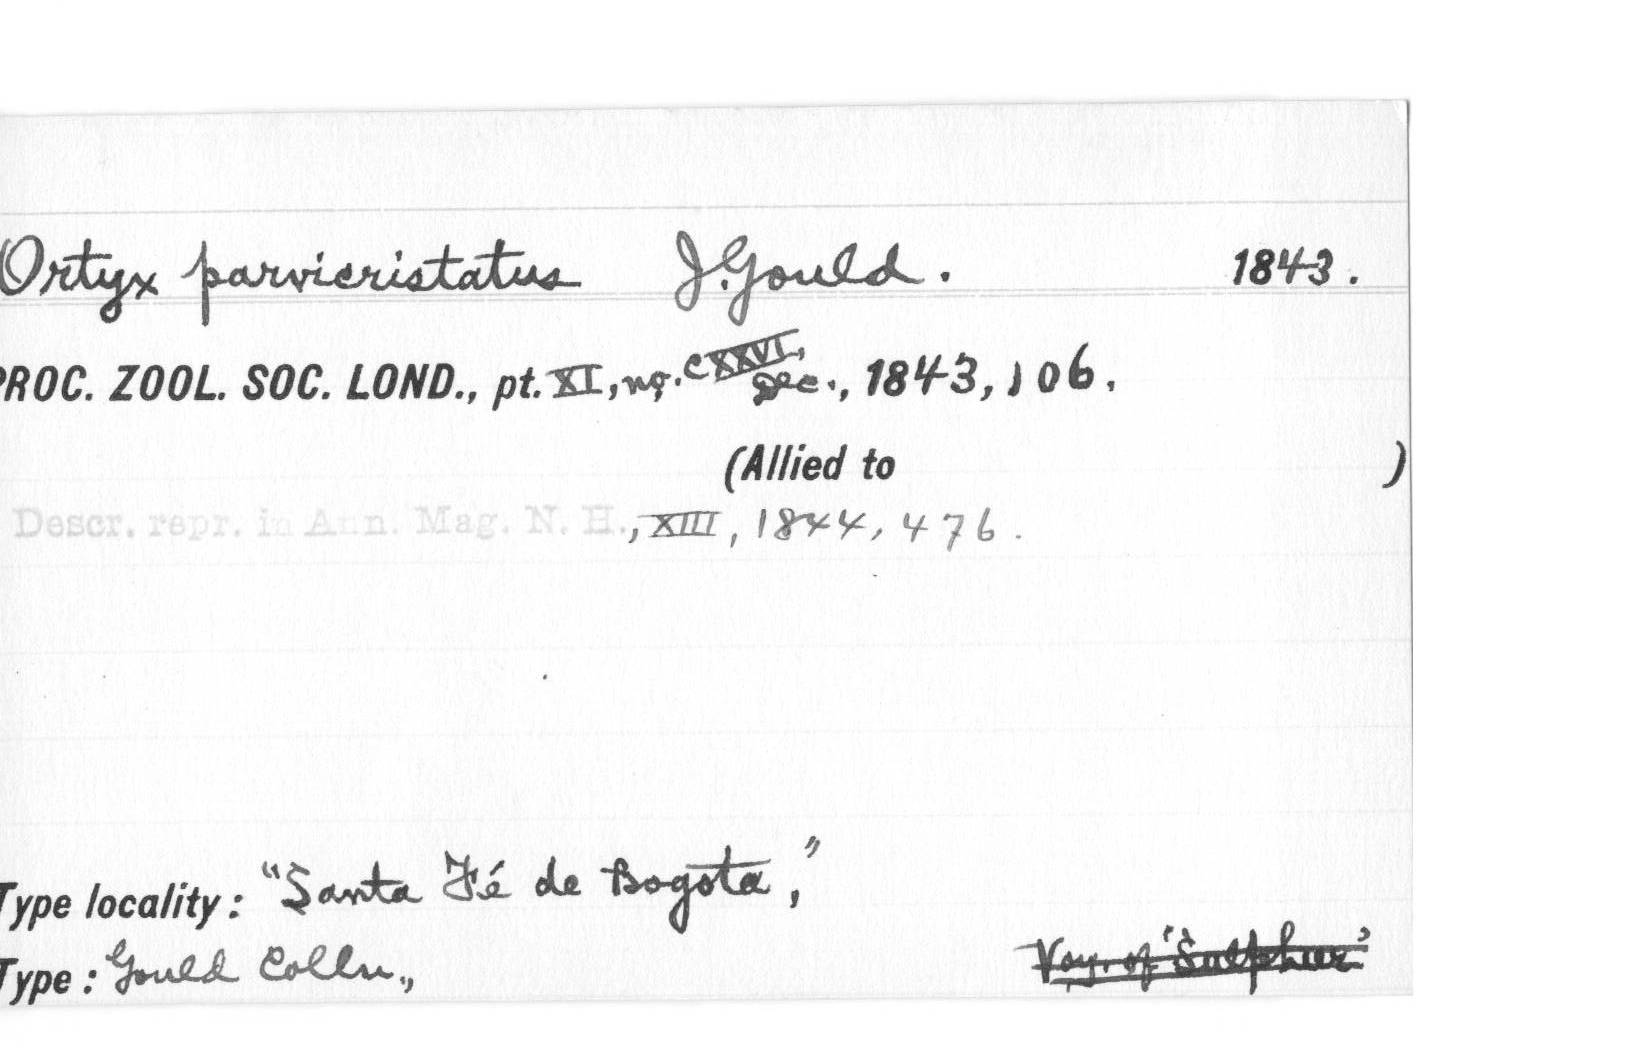 Ortyx parvicristatus J. Gould. 1843.
PROC. ZOOL. SOC. LOND., pt. XI, no. CXXVI, Dec., 1843, 106.
(Allied to )
Descr. repr. in Ann. Mag. N. H., XIII, 1844, 476.
Type locality: "Santa Fé de Bogota,"
Type: Gould Colln.,
Voy. of 'Sulphur'